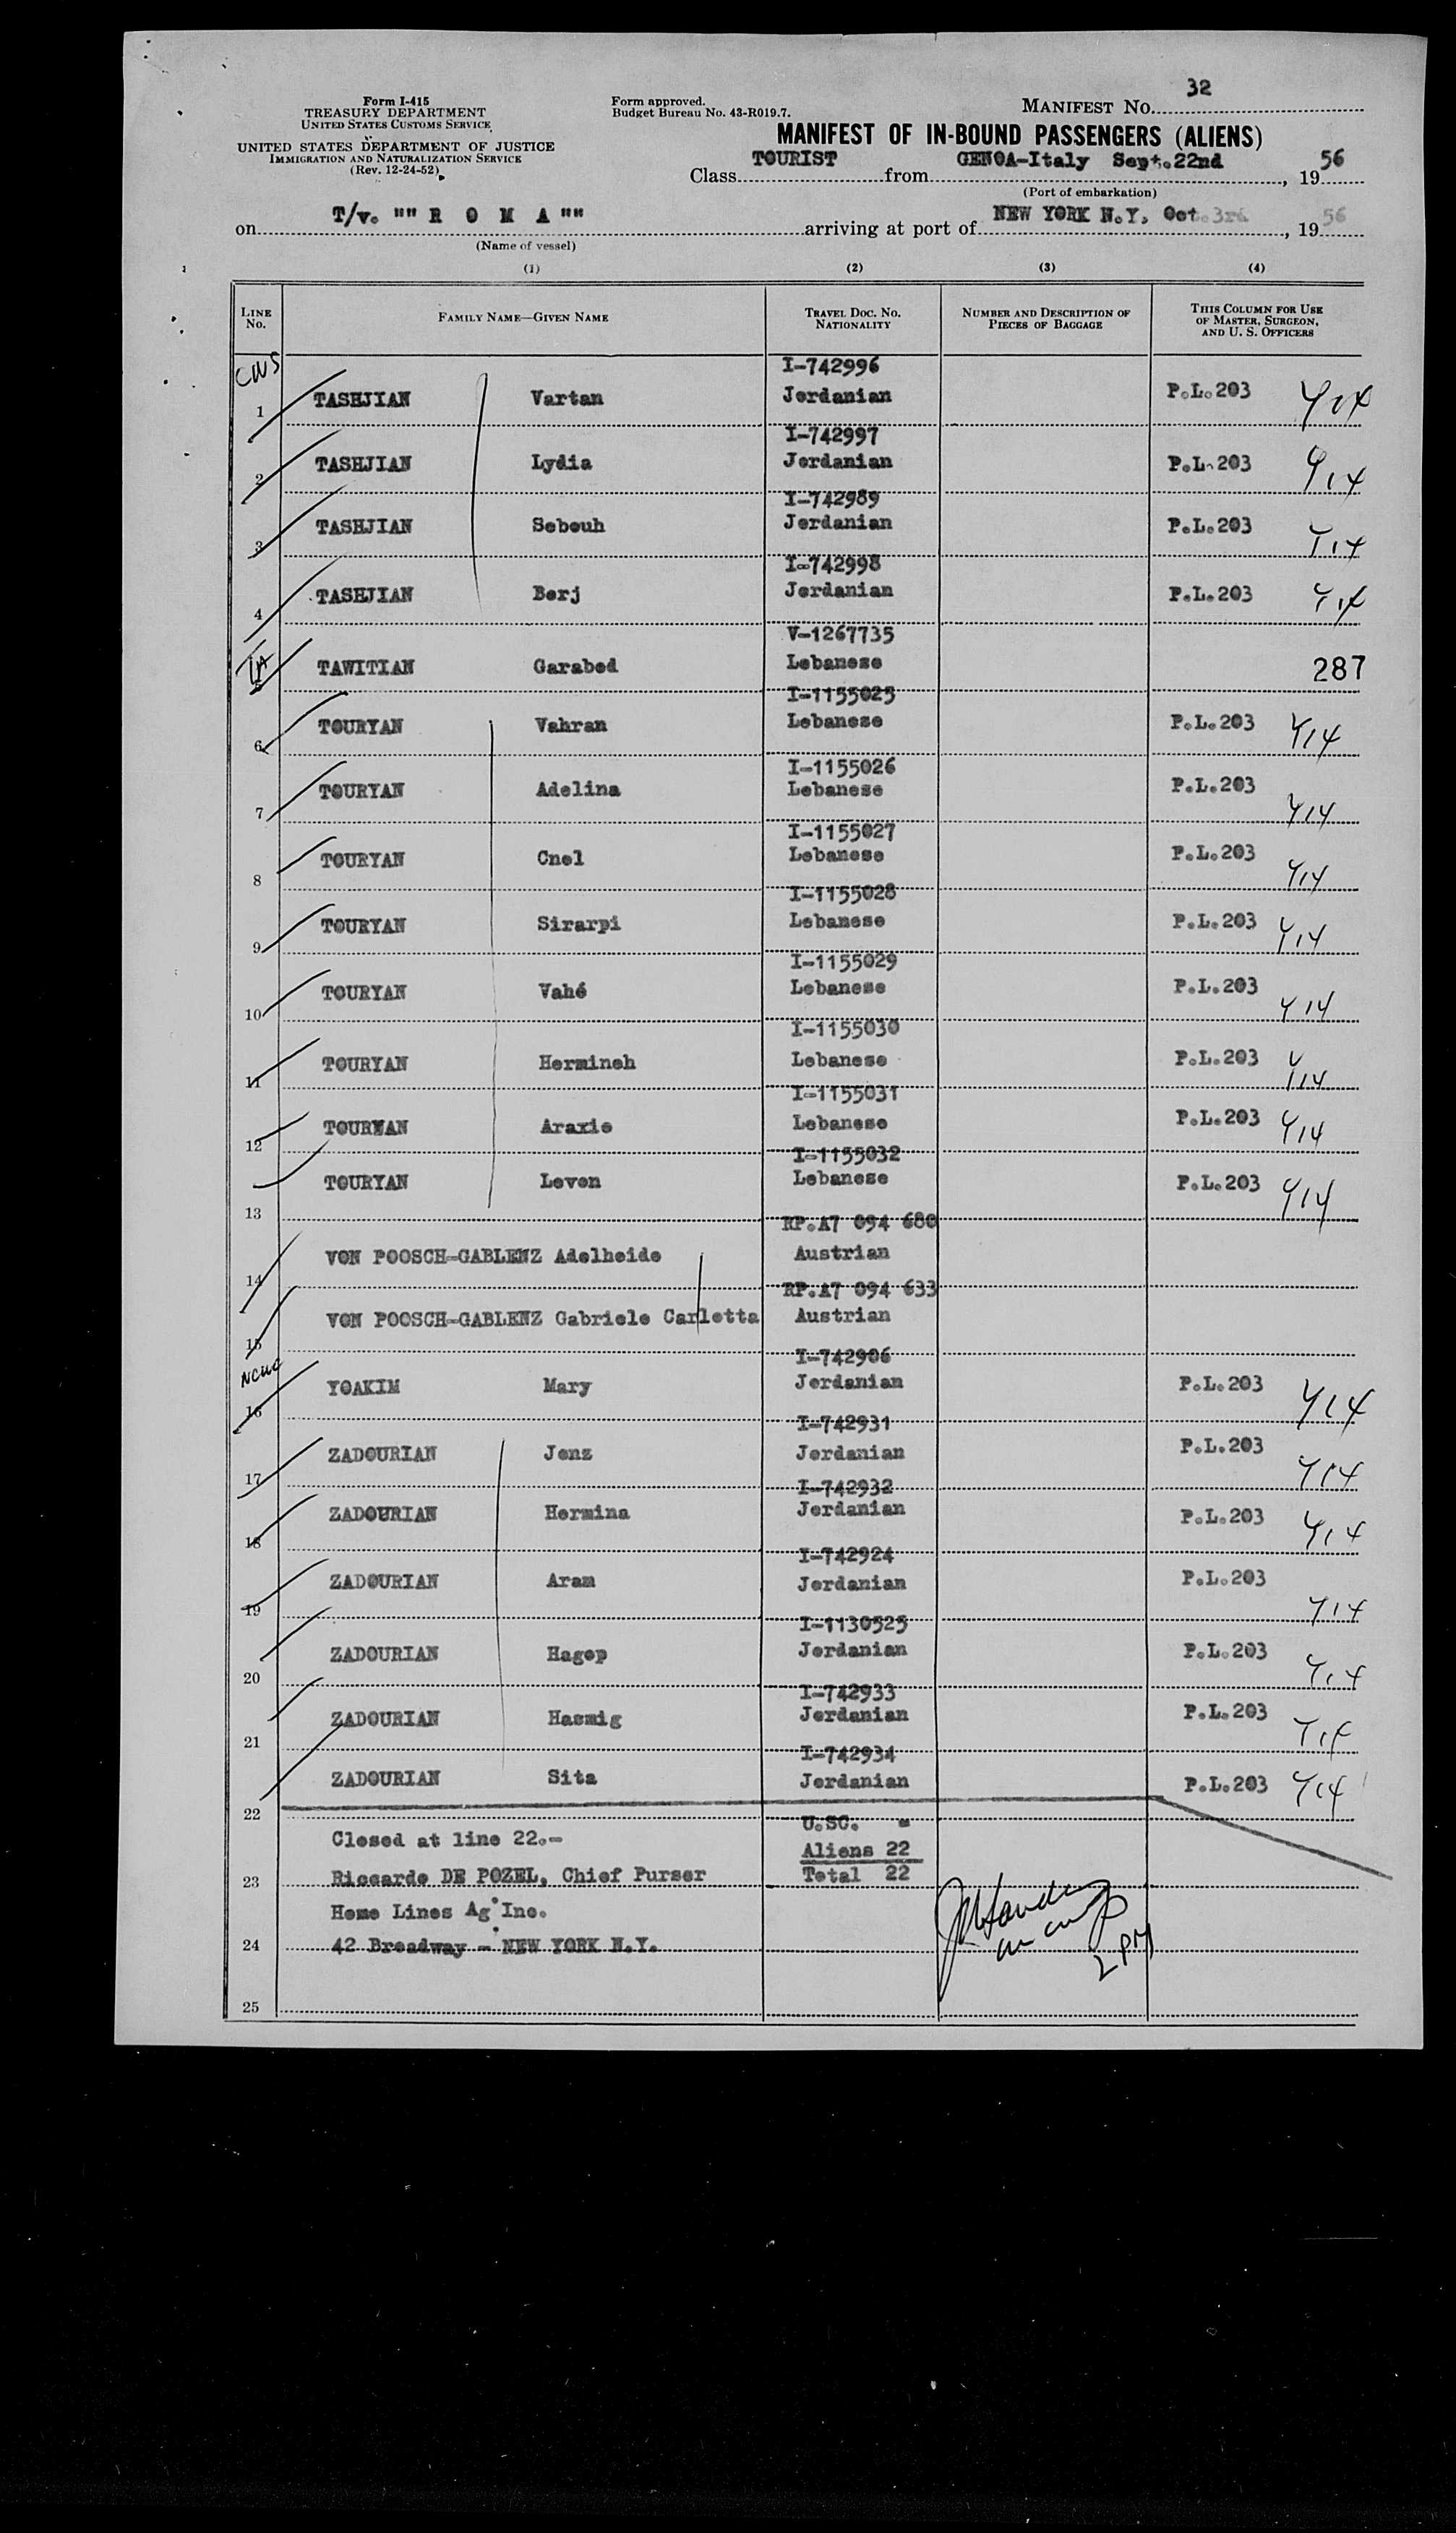 32
Form I-415
TREASURY DEPARTMENT
UNITED STATES CUSTOMS SERVICE
UNITED STATES DEPARTMENT OF JUSTICE
IMMIGRATION AND NATURALIZATION SERVICE
(Rev. 12-24-52)
Form approved.
Budget Bureau No. 43-R019.7.
MANIFEST NO.
MANIFEST OF IN-BOUND PASSENGERS (ALIENS)
Class TOURIST from GENOA-Italy Sept. 22nd, 1956
(Port of embarkation)
on T/v. "" R O M A "" arriving at port of NEW YORK N.Y, Oct. 3rd, 1956
(Name of vessel)
(1) (2) (3) (4)
LINE No. FAMILY NAME—GIVEN NAME TRAVEL DOC. NO. NATIONALITY NUMBER AND DESCRIPTION OF PIECES OF BAGGAGE THIS COLUMN FOR USE OF MASTER, SURGEON, AND U. S. OFFICERS
CWS
I-742996
1 TASHJIAN Vartan Jordanian P.L.203 Y14
I-742997
2 TASHJIAN Lydia Jordanian P.L.203 Y14
I-742989
3 TASHJIAN Sebouh Jordanian P.L.203 Y14
I-742998
4 TASHJIAN Berj Jordanian P.L.203 Y14
V-1267735
5 TAWITIAN Garabed Lebanese 287
I-1155025
6 TOURYAN Vahran Lebanese P.L.203 Y14
I-1155026
7 TOURYAN Adelina Lebanese P.L.203 Y14
I-1155027
8 TOURYAN Cnel Lebanese P.L.203 Y14
I-1155028
9 TOURYAN Sirarpi Lebanese P.L.203 Y14
I-1155029
10 TOURYAN Vahé Lebanese P.L.203 Y14
I-1155030
11 TOURYAN Hermineh Lebanese P.L.203 Y14
I-1155031
12 TOURYAN Araxie Lebanese P.L.203 Y14
I-1155032
13 TOURYAN Levon Lebanese P.L.203 Y14
RP.A7 094 680
14 VON POOSCH-GABLENZ Adelheide Austrian
RP.A7 094 633
15 VON POOSCH-GABLENZ Gabriele Carletta Austrian
NCWC
I-742906
16 YOAKIM Mary Jordanian P.L.203 Y14
I-742931
17 ZADOURIAN Jenz Jordanian P.L.203 Y14
I-742932
18 ZADOURIAN Hermina Jordanian P.L.203 Y14
I-742924
19 ZADOURIAN Aram Jordanian P.L.203 Y14
I-1130525
20 ZADOURIAN Hagop Jordanian P.L.203 Y14
I-742933
21 ZADOURIAN Hasmig Jordanian P.L.203 Y14
I-742934
22 ZADOURIAN Sita Jordanian P.L.203 Y14
Closed at line 22.- U.SC. =
Aliens 22
23 Riccardo DE POZEL, Chief Purser Total 22
Home Lines Ag Inc.
24 42 Broadway - NEW YORK N.Y.
2 PM
25